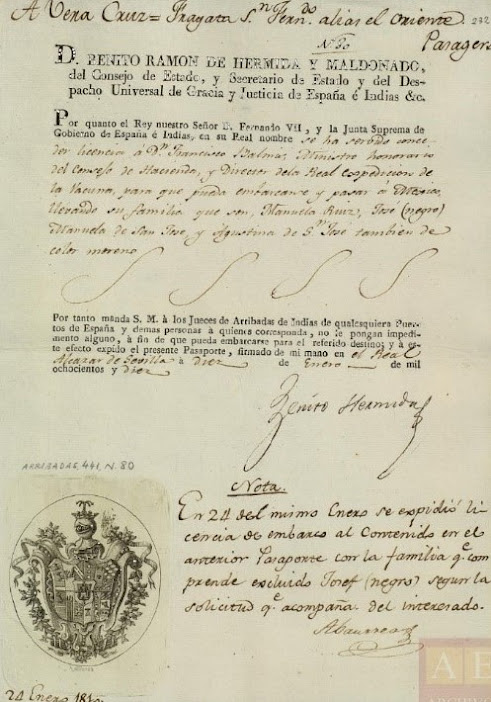 A Vera Cruz = Fragata Sn. Ferndo. alias el Oriente. 272
No. 80 Pasagero
D. BENITO RAMON DE HERMIDA Y MALDONADO,
del Consejo de Estado, y Secretario de Estado y del Des-
pacho Universal de Gracia y Justicia de España é Indias &c.
Por quanto el Rey nuestro Señor D. Fernando VII, y la Junta Suprema de
Gobierno de España é Indias, en su Real nombre se ha servido conce-
der licencia á Dn. Francisco Balmis, Ministro honorario
del Consejo de Hacienda, y Director de la Real Expedicion de
la Vacuna, para que pueda embarcarse y pasar á México,
llevando su familia que son, Manuela Ruiz, José (negro)
Manuela de San José, y Agustina de Sn. José tambien de
color moreno
Por tanto manda S. M. à los Jueces de Arribadas de Indias de qualesquiera Puer-
tos de España y demas personas à quienes corresponda, no le pongan impedi-
mento alguno, à fin de que pueda embarcarse para el referido destino; y à es-
te efecto expido el presente Passporte, firmado de mi mano en el Real
Alcazar de Sevilla à diez de Enero de mil
ochocientos y diez
Benito Hermida
ARRIBADAS, 441, N. 80
Nota.
En 24 del mismo Enero se expidió li-
cencia de embarco al Contenido en el
anterior Pasaporte con la familia qe. com-
prende excluido Josef (negro) segun la
solicitud qe. acompaña del interesado.
24 Enero 1810
AE